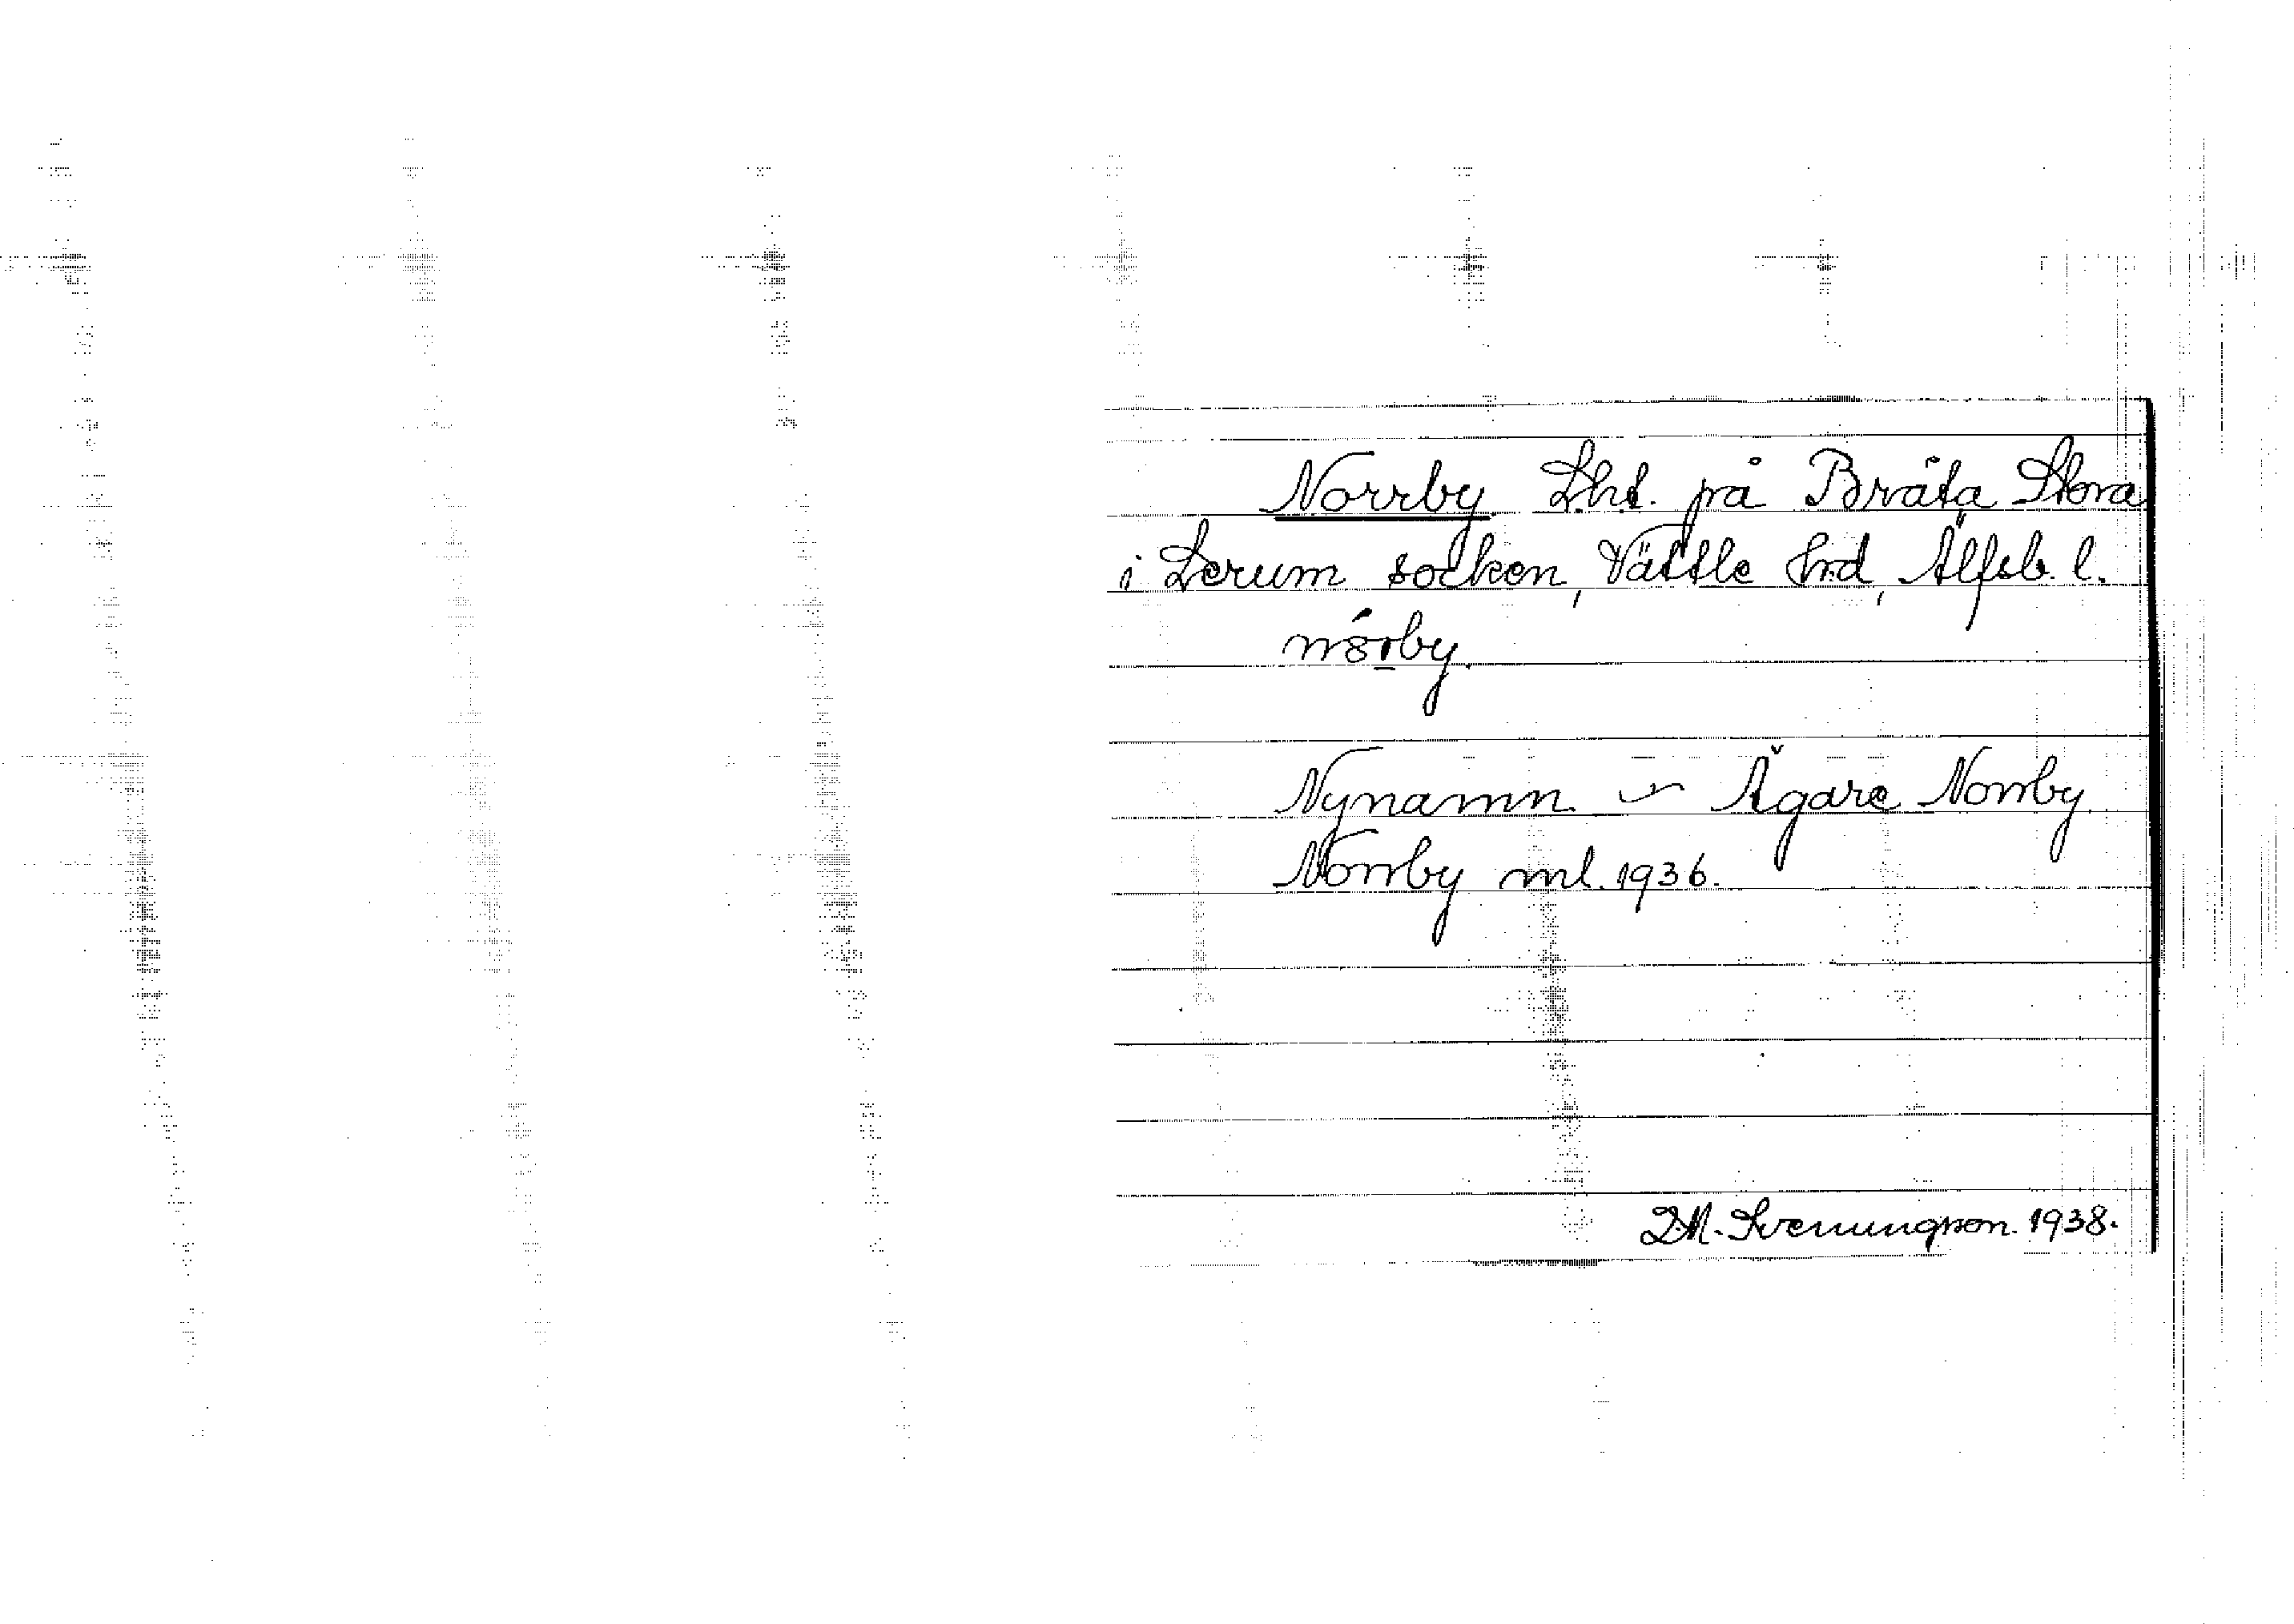 Norrby. Lht. på Bråta Stora
i Lerum socken, Vättle hrd, Älfsb. l.
nórby.
Nynamn. ~ Ägare Norrby.
Norrby ml. 1936.
D.A. Svenungson. 1938.